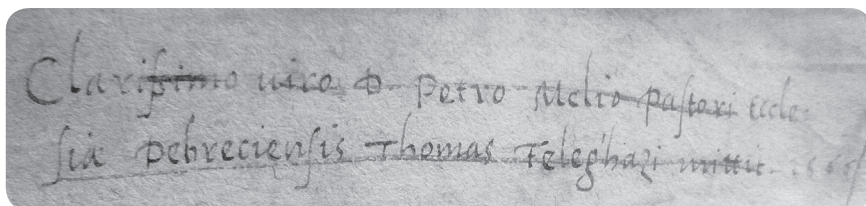 Clarissimo uiro D. Petro Melio pastori Eccle-
siæ Debreciensis Thomas Teleghazi mittit.